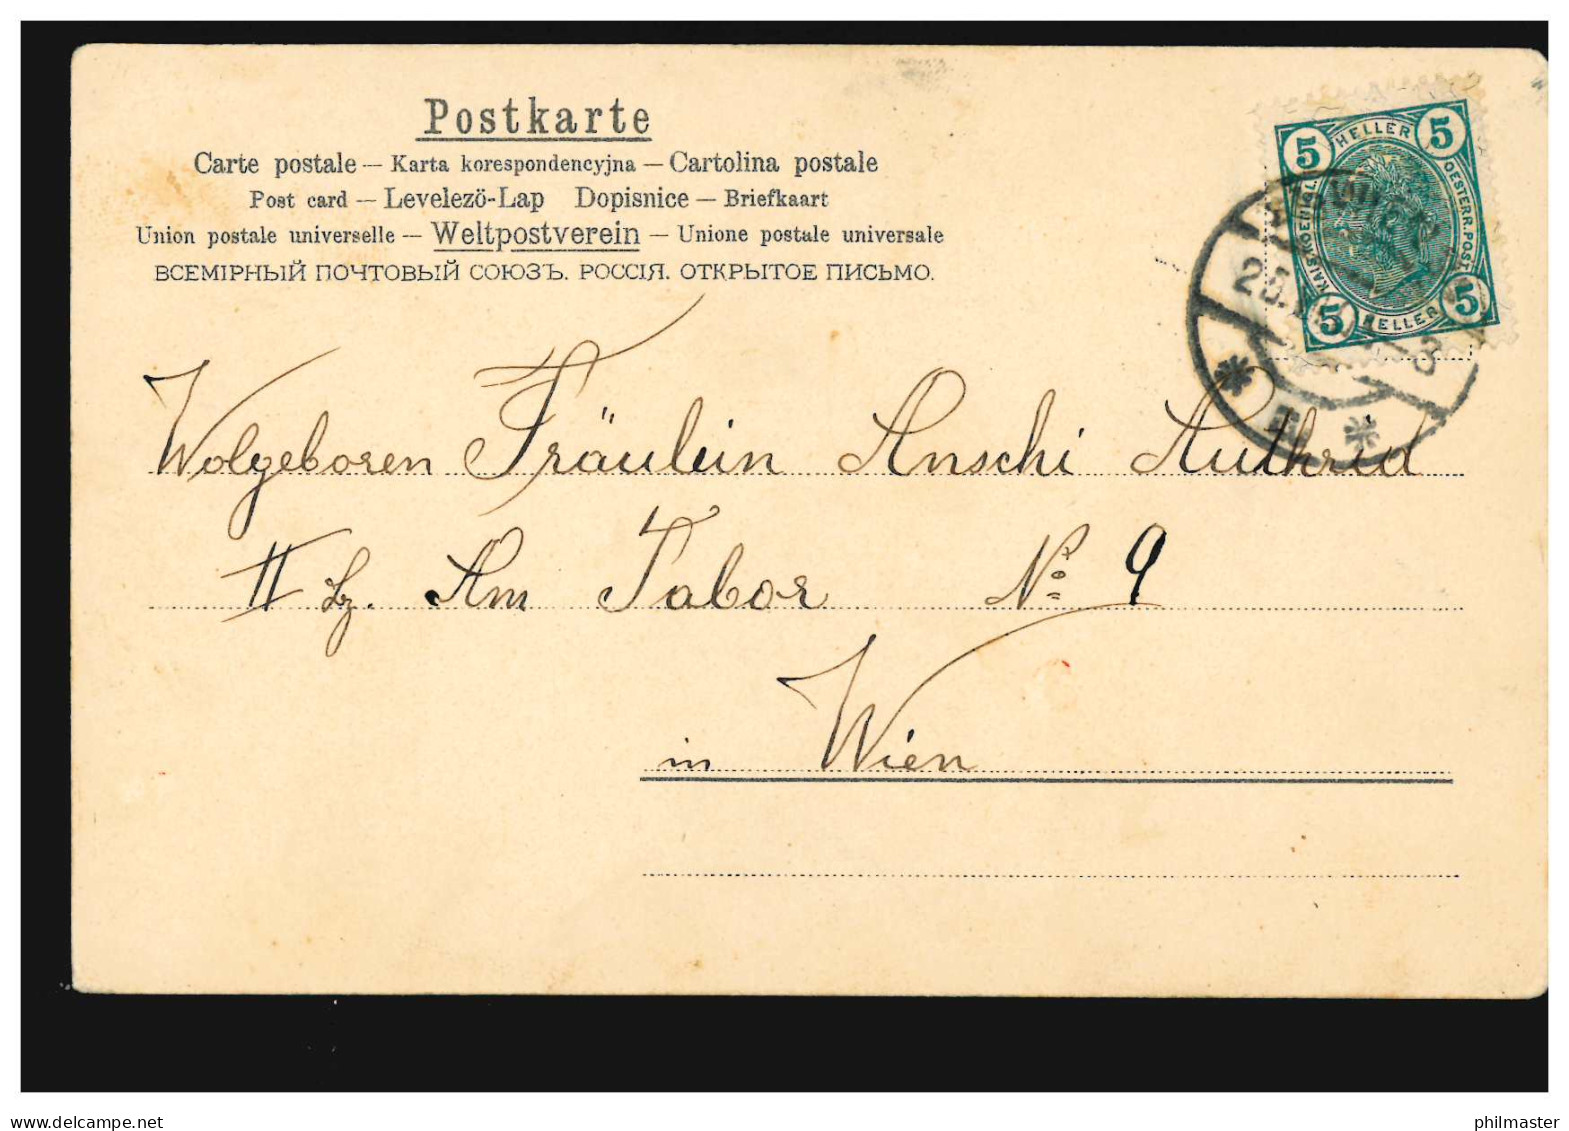 Postkarte
Carte postale — Karta korespondencyjna — Cartolina postale
Post card — Levelezö-Lap Dopisnice — Briefkaart
Union postale universelle — Weltpostverein — Unione postale universale
ВСЕМІРНЫЙ ПОЧТОВЫЙ СОЮЗЪ. РОССІЯ. ОТКРЫТОЕ ПИСЬМО.
5 HELLER 5
KAIS. KOENIGL. OESTERR. POST
5 HELLER 5
Wolgeboren Fräulein Anschi Authried
II Bz. Am Tabor No 9
in Wien
www.delcampe.net
philmaster